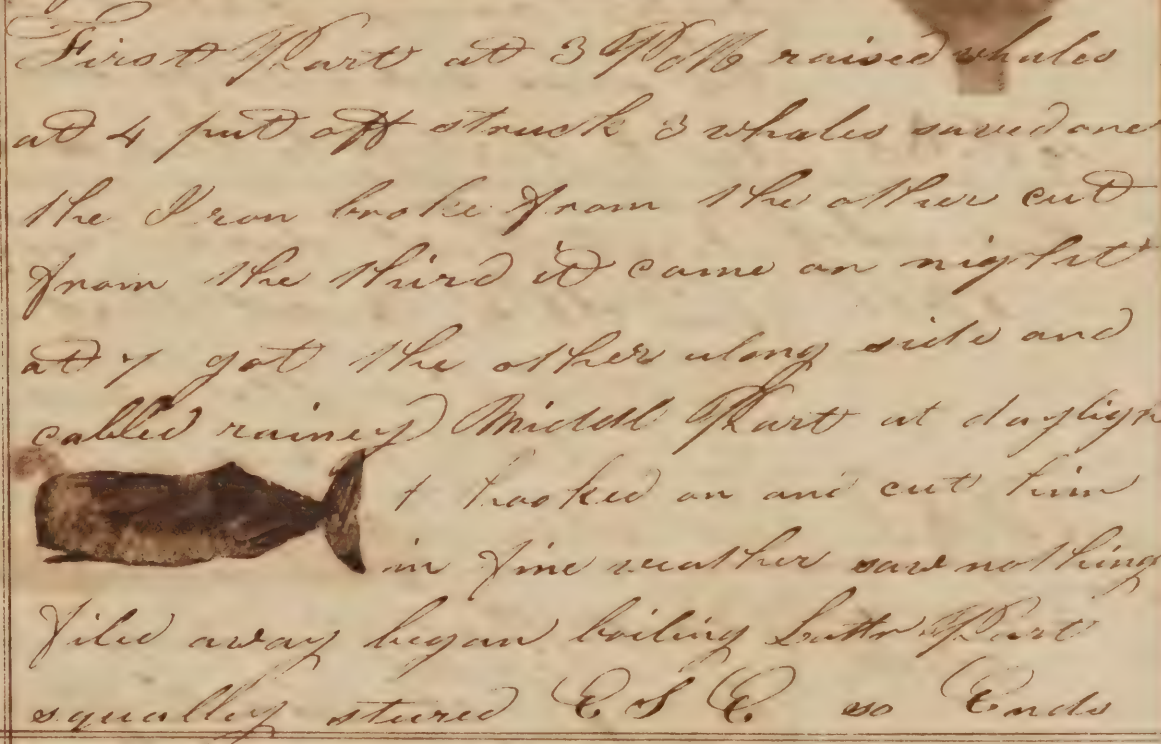 First Part at 3 PM raised whales
at 4 put off struck 3 whales saved one
the Iron broke from the other cut
from the third it came on night
at 7 got the other along side and
called rainey Middl Part at dayligh
t hooked on and cut him
in fine weather saw nothing
filed away began boiling Lattr Part
squally stured E S E so Ends